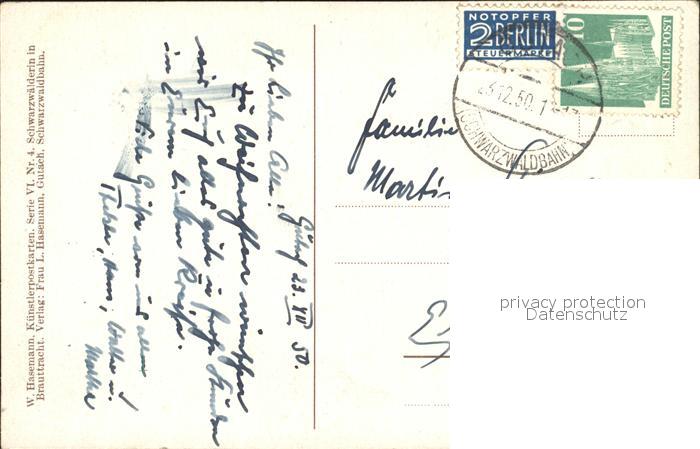 W. Hasemann, Künstlerpostkarten. Serie VI. Nr. 4. Schwarzwälderin in
Brauttracht. Verlag: Frau L. Hasemann, Gutach, Schwarzwaldbahn.
Ihr lieben Alle!
Gutach 23. XII 50.
Zu Weihnachten wünschen
wir Euch alles gute u. frohe Stunden
im Kreise.
Grüße von uns allen
Hans, u.
Martha
NOTOPFER
2 BERLIN
STEUERMARKE
10
DEUTSCHE POST
23.12.50.1
(SCHWARZWALDBAHN)
Familie
Marti
privacy protection
Datenschutz